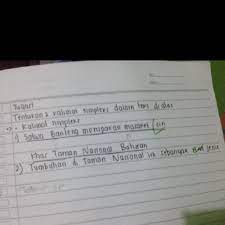 Tugas!
Tentukan 2 kalimat simpleks dalam teks di atas
=> Kalimat simpleks
1) Satwa Banteng merupakan maskot / ciri
khas Taman Nasional Baluran
2) Tumbuhan di Taman Nasional ini sebanyak jenis